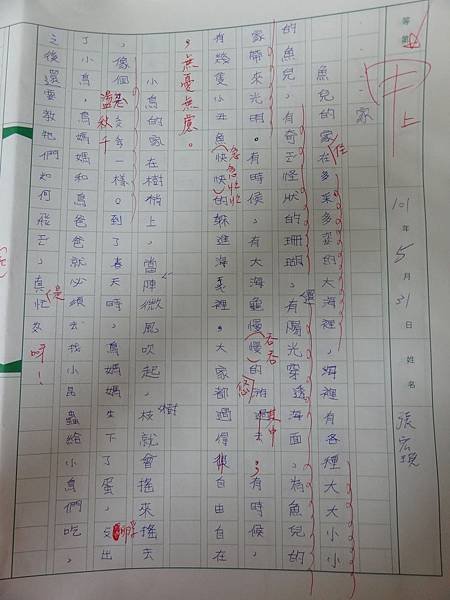 等第
中上
101年5月31日 姓名 張宏
家
魚兒的家在多采多姿的大海裡,海裡有各種大大小小
住
的魚兒,有奇怪狀的珊瑚,有陽光穿透海面,將魚兒的
還
家帶來光明。有時候,有大海龜慢慢的游過去;有時候,
吞吞
悠
其中
有幾隻小丑魚快快的躲進海葵裡。大家都過得很自由自在
急急忙忙
,無憂無慮。
小鳥的家在樹梢上,當陣微風吹起,枝就會搖來搖去
樹
,像個一樣。到了春天時,鳥媽媽生下了蛋,出
盪秋千
孵
了小鳥,鳥媽媽和鳥爸爸就必須去找小昆蟲給小鳥們吃,
之後還要教牠們如何飛,真忙呀!
是